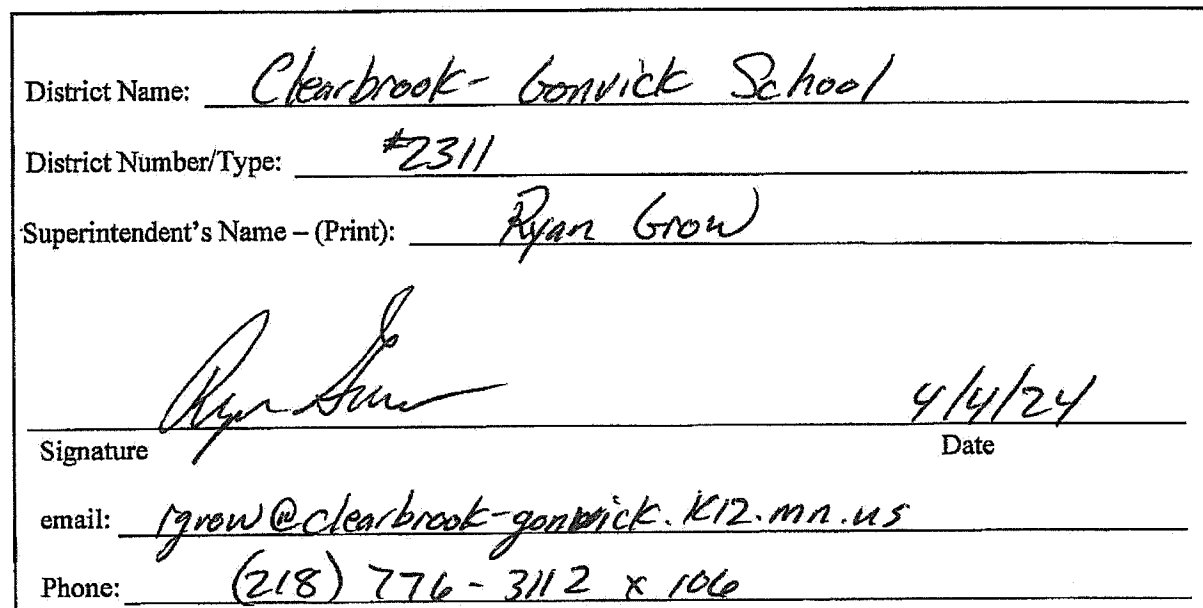 District Name: Clearbrook- Gonvick School
District Number/Type: #2311
Superintendent's Name – (Print): Ryan Grow
Ryan Grow 4/4/24
Signature Date
email: rgrow@clearbrook-gonvick.K12.mn.us
Phone: (218) 776-3112 x 106